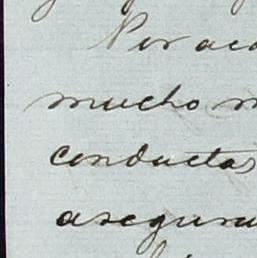 Por acá
mucho m
conductas
asegura